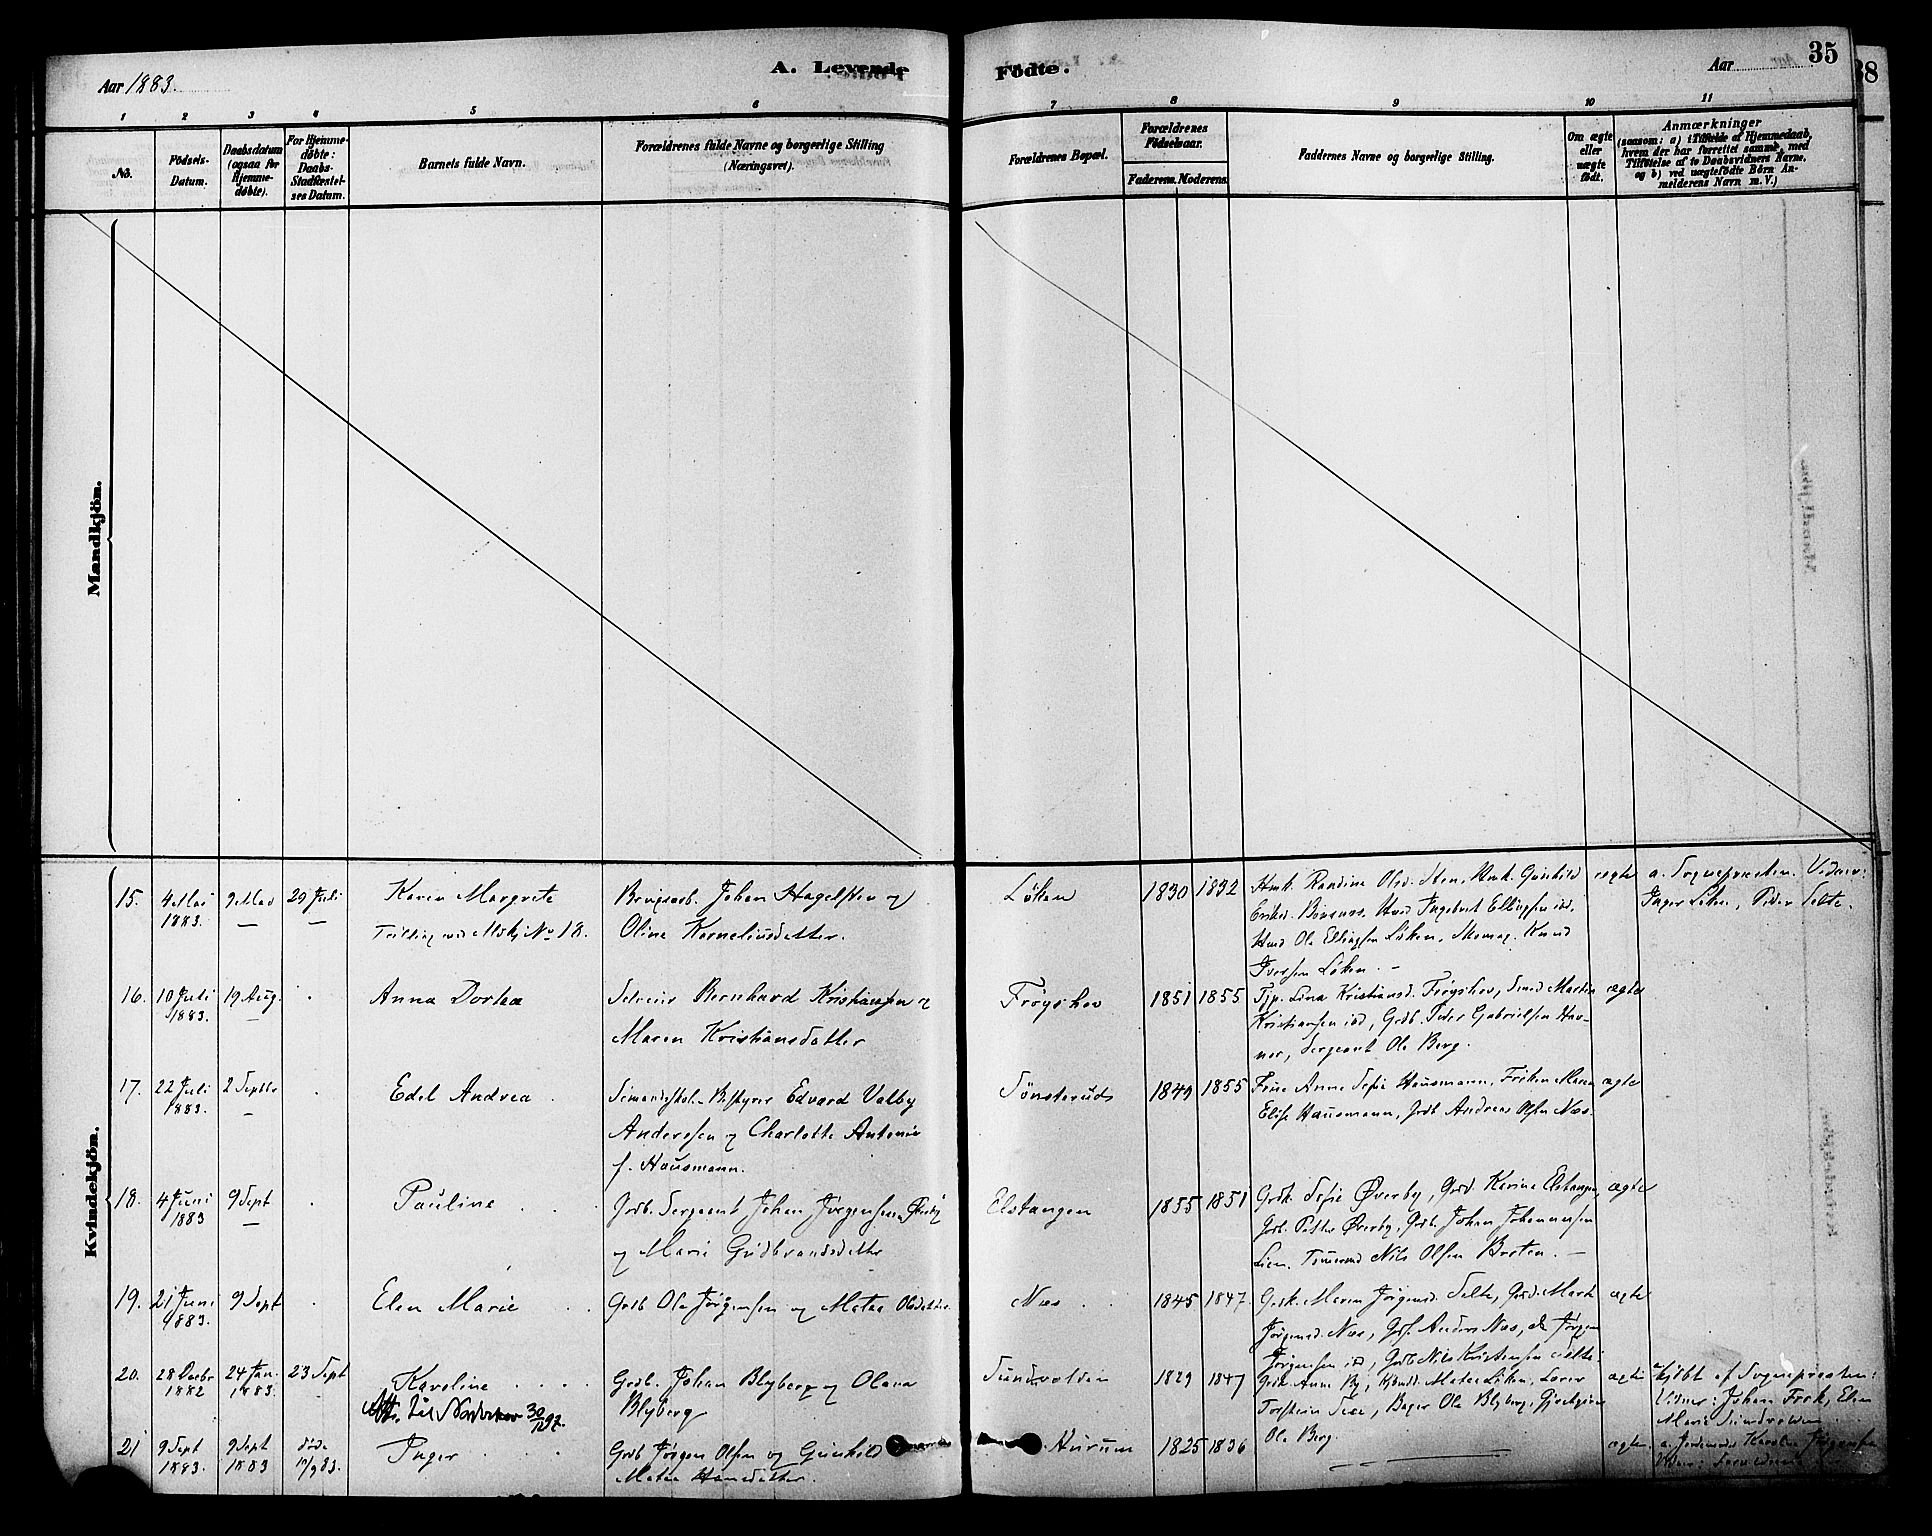 Aar 1883.
A. Levende Födte.
Aar
35
38
1 2 3 4 5 6 7 8 9 10 11
No.
Födsels-
Datum.
Daabsdatum
(ogsaa for
Hjemme-
døbte).
For Hjemme-
døbte:
Daabs-
Stadfæstel-
ses Datum.
Barnets fulde Navn.
Forældrenes fulde Navne og borgerlige Stilling
(Næringsvei).
Forældrenes Bopæl.
Forældrenes
Födselsaar.
Faderens. Moderens.
Faddernes Navne og borgerlige Stilling.
Om ægte
eller
uægte
født.
Anmærkninger
(saasom: a) i Tilfælde af Hjemmedaab,
hvem der har forrettet samme, med
Tilføielse af to Daabsvidners Navne,
og b) ved uægtefødte Börn An-
melderens Navn m. V.)
Mandkjön.
Kvindekjön.
15. 4 Mai
1883.
9 Mai
29 Juli
Karen Margrete
Trilling No 18.
Johan Hagelsten og
Oline Korneliusdatter.
Løken
1830 1832
Randine Olsd. Sten, Gunhild
Ingebret Ellingsen ibd,
Ole Ellingsen Løken, Knud
Iversen Løken. —
ægte
a. Sognepresten. Vidner:
Inger Løken, Peder Selte.
16. 10 Juli
1883.
19 Aug.
Anna Dortea
Bernhard Kristiansen og
Maren Kristiansdatter
Frøyshov
1851 1855
Lina Kristiansd. Frøyshov, Smed Martin
Kristiansen ibd, Grdb. Peder Gabrielsen Hav-
nor, Sergeant Ole Berg.
ægte
17. 22 Juli
1883.
2 Septbr
Edel Andrea
Bestyrer Edvard Valby
Anderssen og Charlotte Antonie
f. Hausmann.
Sønsterud
1849 1855
Frue Anne Sofie Hausmann, Frøken Maren
Elise Hausmann, Grdb Andreas Olsen Næs.
ægte
18. 4 Juni
1883
9 Sept
Pauline
Grdb. Sergeant Johan Jørgensen Øverby
og Marie Gudbrandsdatter
Elstangen
1855 1851
Grdk. Sofie Øverby, Grdd. Karine Elstangen,
Grdb. Petter Øverby, Grdb. Johan Johannessen
Lien. Nils Olsen Braten. —
ægte
19. 21 Juni
1883.
9 Sept
Elen Marie
Grdb Ole Jørgensen og Matea Olsdatter.
Næs
1845 1847.
Grdk. Maren Jørgensd. Selte, Grdd. Marte
Jørgensd. Næs, Grds. Anders Næs, do Jørgen
Jørgensen ibd, Grdb Nils Kristensen Selte.
ægte
20. 28 Decbr
1882
24 Jan.
1883.
23 Sept
Karoline
Att. til 30/12 92.
Grdb. Johan Blyberg og Olava
Blyberg
Sundvolden
1829 1847
Grdk. Anne By, Matea Løken, Lærer
Torstein Bager Ole Blyberg,
Ole Berg.
ægte
døbt af Sognepresten:
Vidner: Johan Fork, Elen
Marie Sundvolden
21 9 Sept
1883.
9 Sept
1883
døde
/9 83.
Inger
Grdb Jørgen Olsen og Gunhild
Matea Hansdatter.
Hurum
1825 1836
ægte.
a. Jordemoder Karoline Jørgensen
Vidner: Forældrene